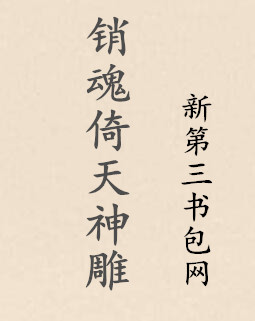 销魂倚天神雕
新第三书包网